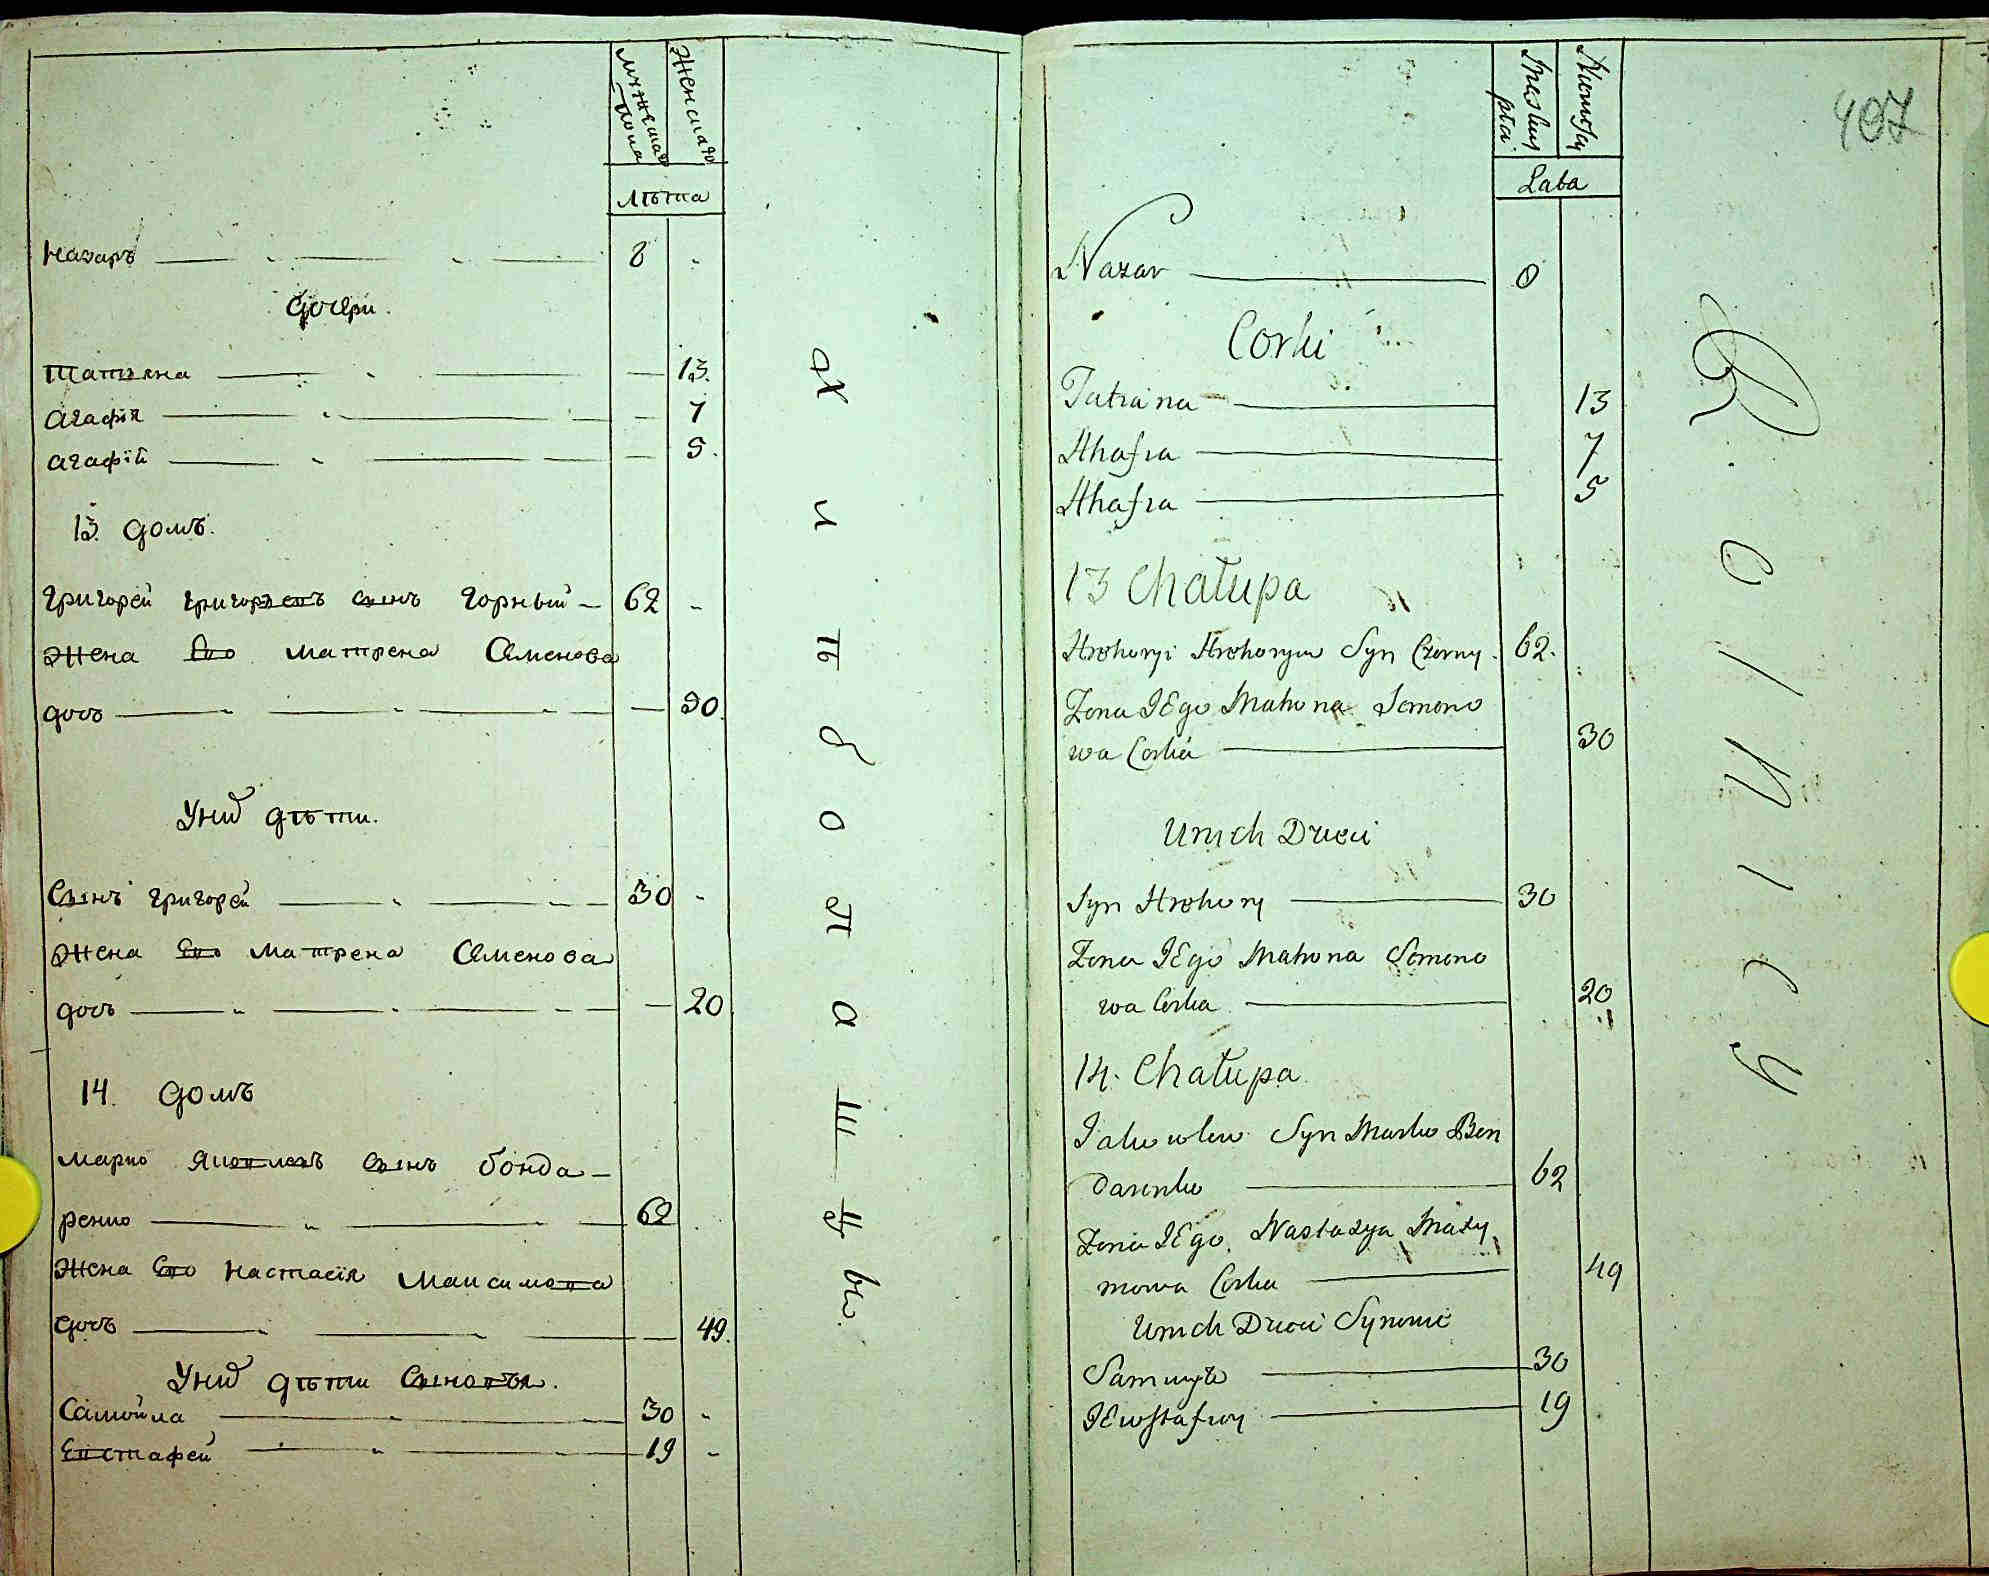 мужеска пола
Женска
Лѣта
Назаръ 8
дочери.
татияна 13.
агафия 7
агафїй 5.
13. домъ.
григорей григорьевъ сынъ горный 62
жена Его матрена Семенова
дочь 30
У них дѣти.
Сынъ григорей 30
жена Его матрена Семенова
дочь 20
14. домъ
марко Яковлевъ сынъ бонда-
ренко 62
жена Его Настасїя Максимова
дочь 49.
У них дѣти Сыновья.
Самойла 30
Евстафей 19
хлѣбопашцы
407
Męskiey płci
Lata
Nazar 8
Corki
Tatiana 13
Ahafia 7
Ahafia 5
13 Chałupa
Hrehoryi Hrehoryiw Syn Czorny 62.
Zona IEgo Matrona Semeno
wa Corka 30
Unich Dzieci
Syn Hrehory 30
Zona IEgo Matrona Semeno
wa Corka 20
14. Chałupa
Jakuwlew Syn Marko Bon
darenko 62
Zona IEgo Nastazya Maxy
mowa Corka 49
Unich Dzieci Synowie
Samuyło 30
IEwstafiey 19
Rolnicy